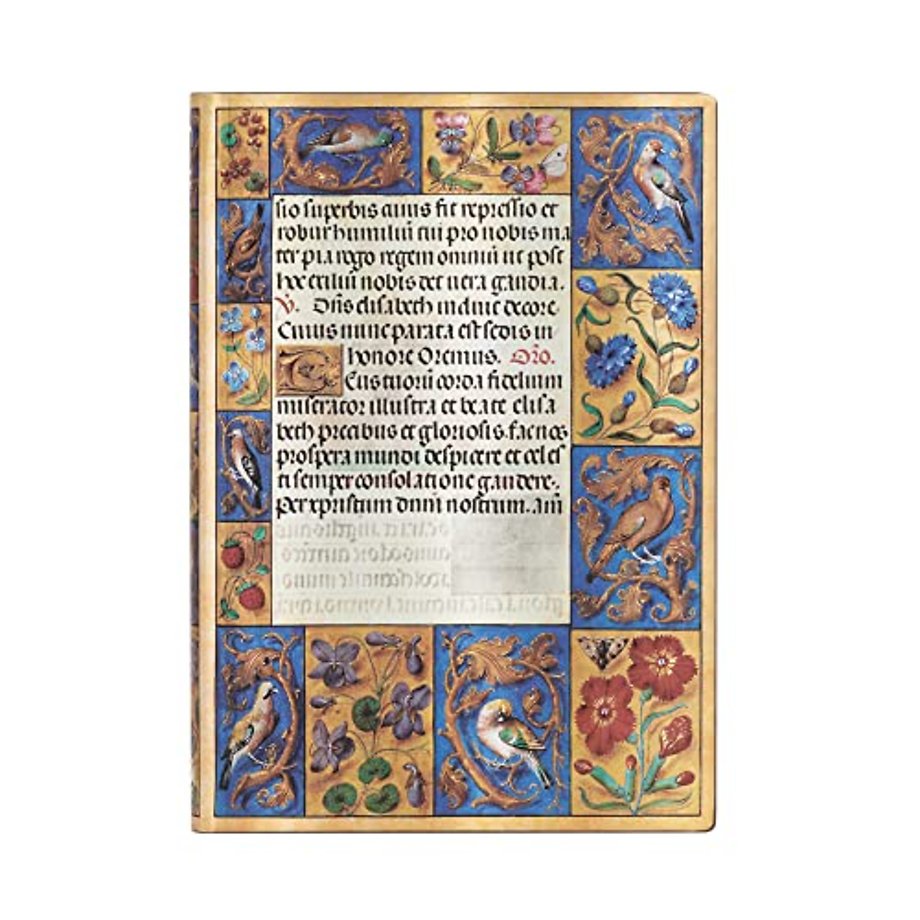 sio superbis cuius fit repressio et
robur humiliũ tui pro nobis ma
ter pia rogo regem omniũ ut post
hoc exiliũ nobis det uera gaudia.
V. Dñs elisabeth induit decore.
Cuius nunc parata est sedis in
honore Oremus. Oro.
Deus tuorũ corda fidelium
miserator illustra et beate elisa
beth precibus et gloriosis. fac nos
prospera mundi despicere et celes
ti semper consolatione gaudere.
Per xpristum dnm̃ nostrum. am̃